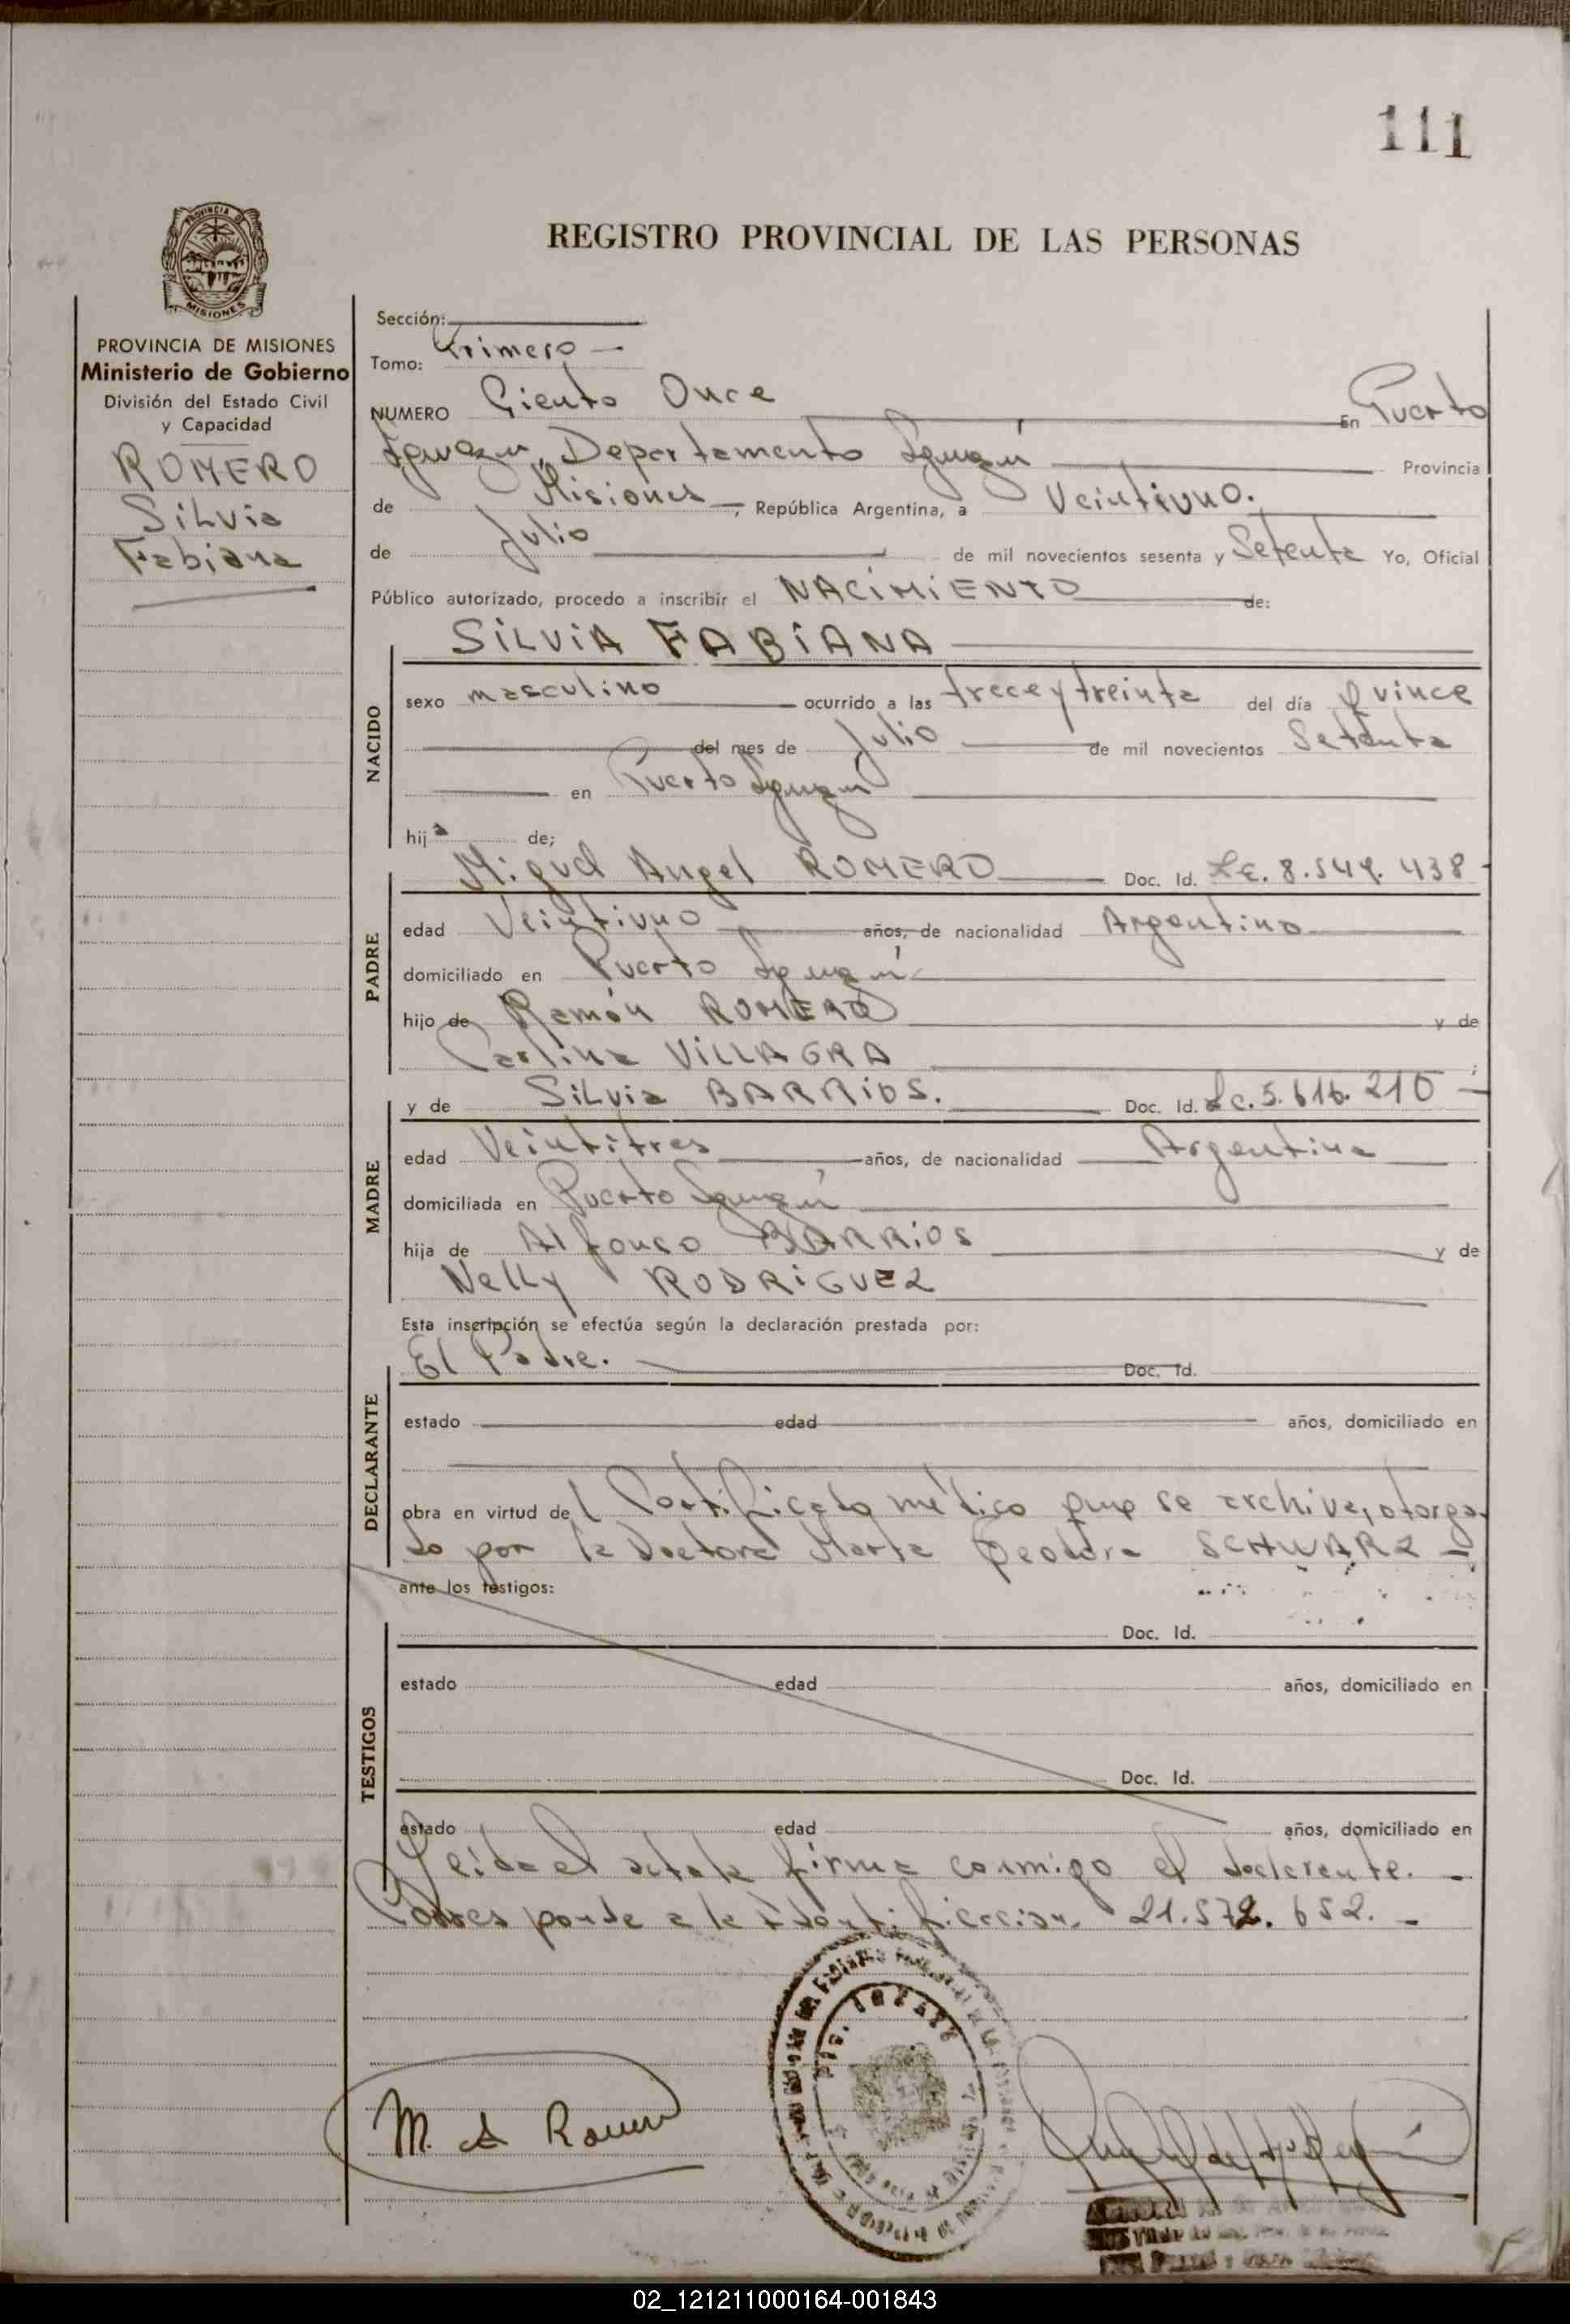 111
PROVINCIA DE
MISIONES
REGISTRO PROVINCIAL DE LAS PERSONAS
PROVINCIA DE MISIONES
Ministerio de Gobierno
División del Estado Civil
y Capacidad
ROMERO
Silvia
Fabiana
Sección:
Tomo: Primero
NUMERO Ciento Once En Puerto
Iguazú, Departamento Iguazú Provincia
de Misiones, República Argentina, a Veintiuno.
de Julio de mil novecientos sesenta y Setenta Yo, Oficial
Público autorizado, procedo a inscribir el NACIMIENTO de:
SILVIA FABIANA
NACIDO
sexo masculino ocurrido a las trece y treinta del día quince
del mes de Julio de mil novecientos Setenta
en Puerto Iguazú
hija de;
Miguel Angel ROMERO Doc. Id. LE. 8.549.438
PADRE
edad Veintiuno años, de nacionalidad Argentino
domiciliado en Puerto Iguazú
hijo de Ramón ROMERO y de
Carlina VILLAGRA ;
y de Silvia BARRIOS. Doc. Id. Lc. 5.616.210
MADRE
edad Veintitres años, de nacionalidad Argentina
domiciliada en Puerto Iguazú
hija de Alfonso BARRIOS y de
Nelly RODRIGUEZ
Esta inscripción se efectúa según la declaración prestada por:
El Padre. Doc. Id.
DECLARANTE
estado edad años, domiciliado en
obra en virtud del Certificado médico que se archiva, otorga-
do por la Doctora Marta Teodora SCHWARZ
ante los testigos:
Doc. Id.
TESTIGOS
estado edad años, domiciliado en
Doc. Id.
estado edad años, domiciliado en
Leida el acta la firma conmigo el declarante.
Corresponde a la Identificación 21.572.652.
M. A Romero
02_121211000164-001843